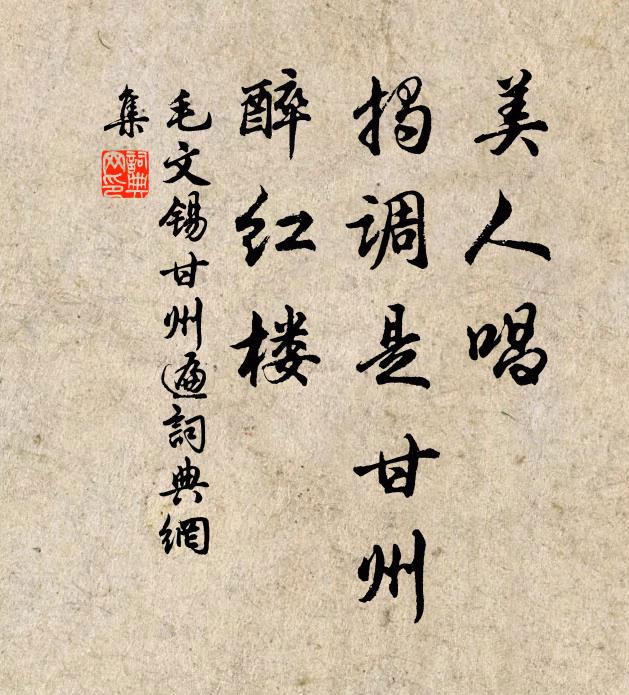 美人唱
揭调是甘州
醉红楼
毛文锡甘州遍詞典網
集
詞典
网印